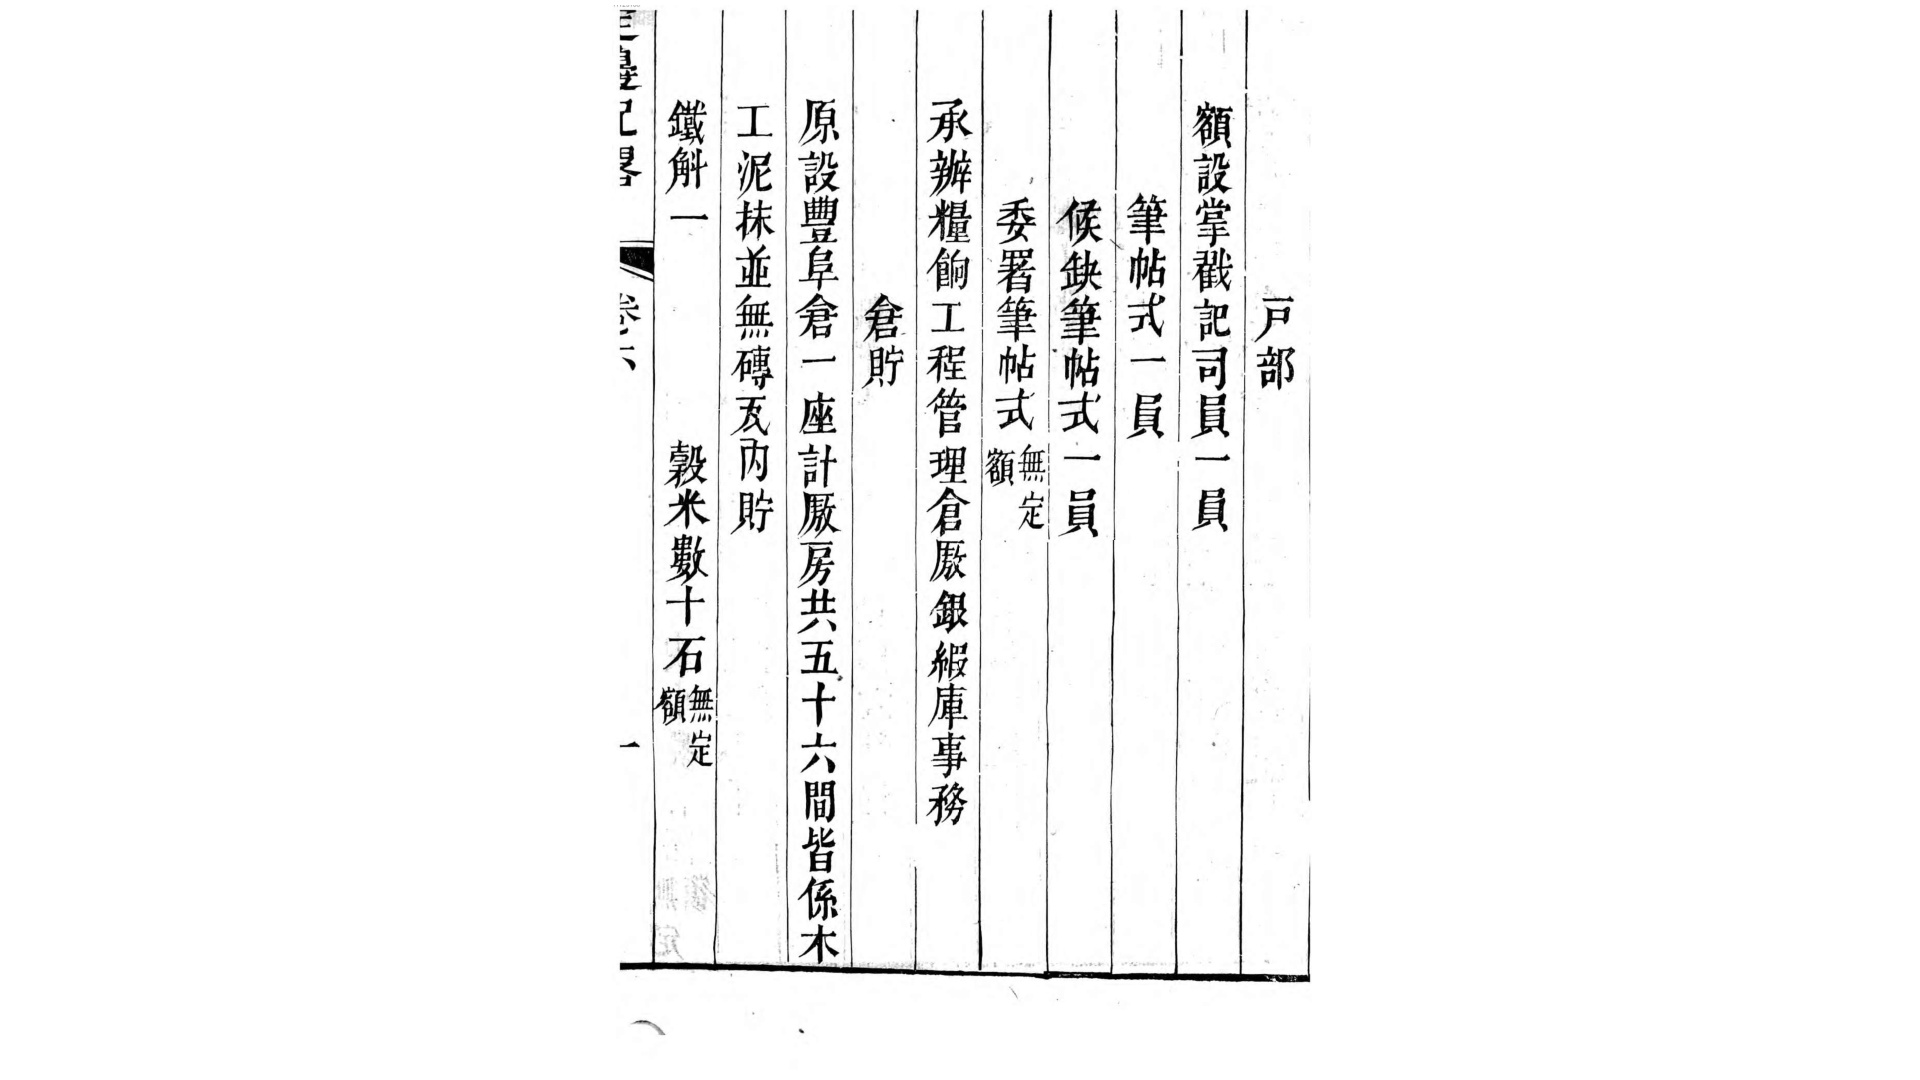 戸部
額設掌戳記司員一員
筆帖式一員
候缺筆帖式一員
委署筆帖式無定額
承辦糧餉工程管理倉厫銀緞庫事務
倉貯
原設豐阜倉一座計厫房共五十六間皆係木
工泥抹並無磚瓦內貯
鐵斛一 穀米數十石無定額
邊記畧 卷六 一